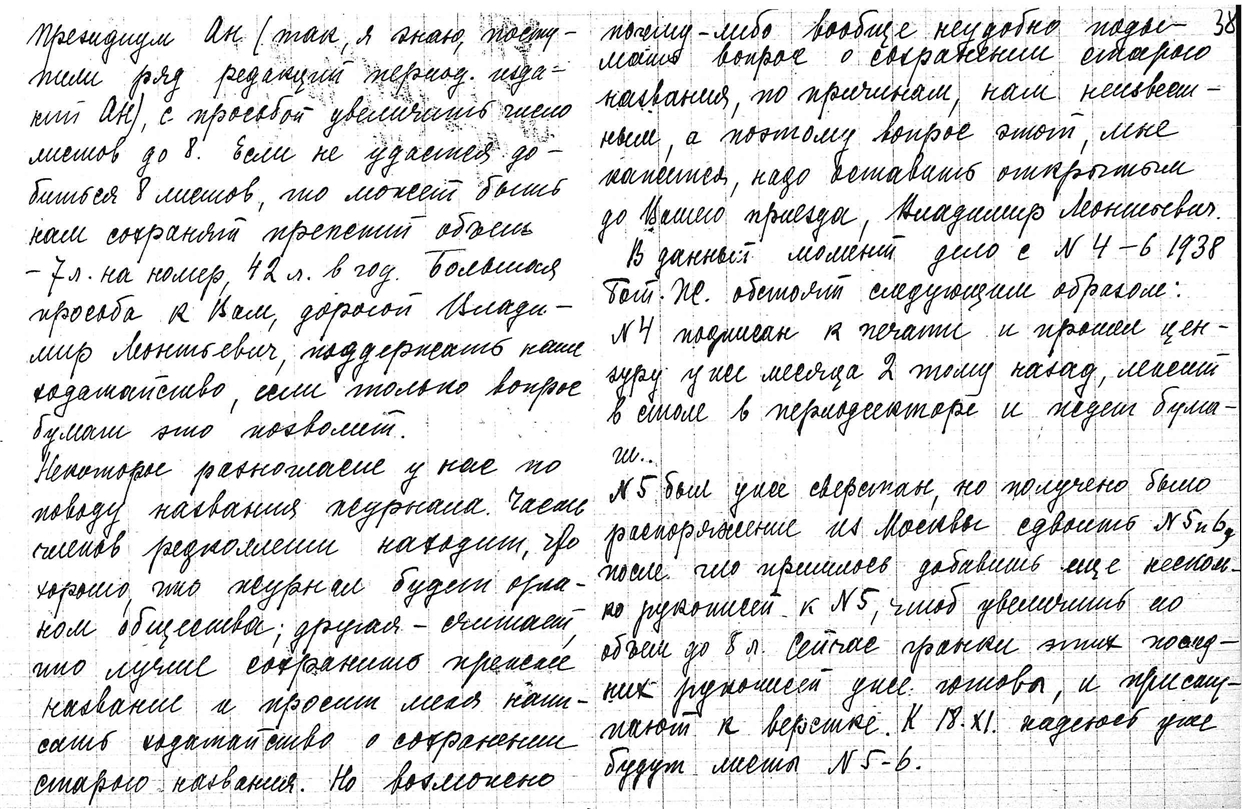 президиум Ан (так, я знаю, посту-
пили ряд редакций период. изда-
ний Ан), с просьбой увеличить число
листов до 8. Если не удастся до-
биться 8 листов, то может быть
нам сохранят прежний объем
-7 л. на номер, 42 л. в год. Большая
просьба к Вам, дорогой Влади-
мир Леонтьевич, поддержать наше
ходатайство, если только вопрос
бумаги это позволит.
Некоторое разногласие у нас по
поводу названия журнала. Часть
членов редколлегии находит, что
хорошо, что журнал будет орга-
ном общества; другая - считает,
что лучше сохранить прежнее
название и просит меня напи-
сать ходатайство о сохранении
старого названия. Но возможно
38
почему-либо вообще неудобно поды-
мать вопрос о сохранении старого
названия, по причинам, нам неизвест-
ным, а поэтому вопрос этот, мне
кажется, надо оставить открытым
до Вашего приезда, Владимир Леонтьевич.
В данный момент дело с N 4-6 1938
Бот. Ж. обстоит следующим образом:
N 4 подписан к печати и прошел цен-
зуру уже месяца 2 тому назад, лежит
в столе в периодсекторе и ждет бума-
ги..
N 5 был уже сверстан, но получено было
распоряжение из Москвы сдвоить N 5 и 6,
после чего пришлось добавить еще несколь-
ко рукописей к N 5, чтоб увеличить его
объем до 8 л. Сейчас гранки этих послед-
них рукописей уже готовы, и присту-
пают к верстке. К 18.XI. надеюсь уже
будут листы N 5-6.